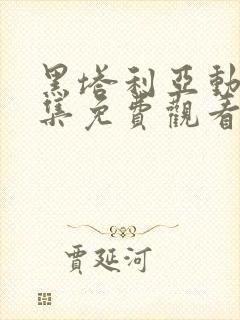 黑塔利亞動
集免費觀看
賈延河